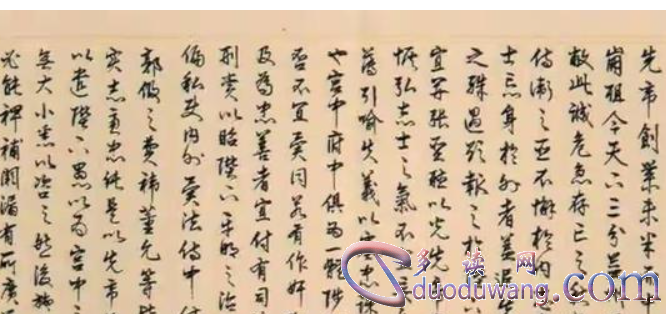 先帝創業未半
崩殂今天下三分益州
敝此誠危急存亡之秋
侍衛之臣不懈於内忠
士忘身於外者蓋追先
之殊遇欲報之於
宜開張聖聽以光先帝
恢弘志士之氣不宜
薄引喻失義以塞忠諫
也宮中府中俱為一體陟
否不宜異同若有作奸
及為忠善者宜付有司
刑賞以昭陛下平明之治
偏私使内外異法侍中侍
郭攸之費禕董允等皆
實志慮忠純是以先帝
以遺陛下愚以為宮中之
無大小悉以咨之然後施
必能裨補闕漏有所廣
多读网
duoduwang.com